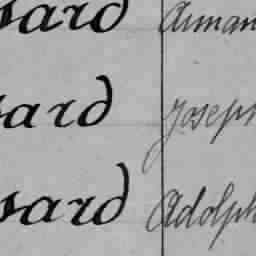 ssard Arman
sard Joseph
ssard Adolph